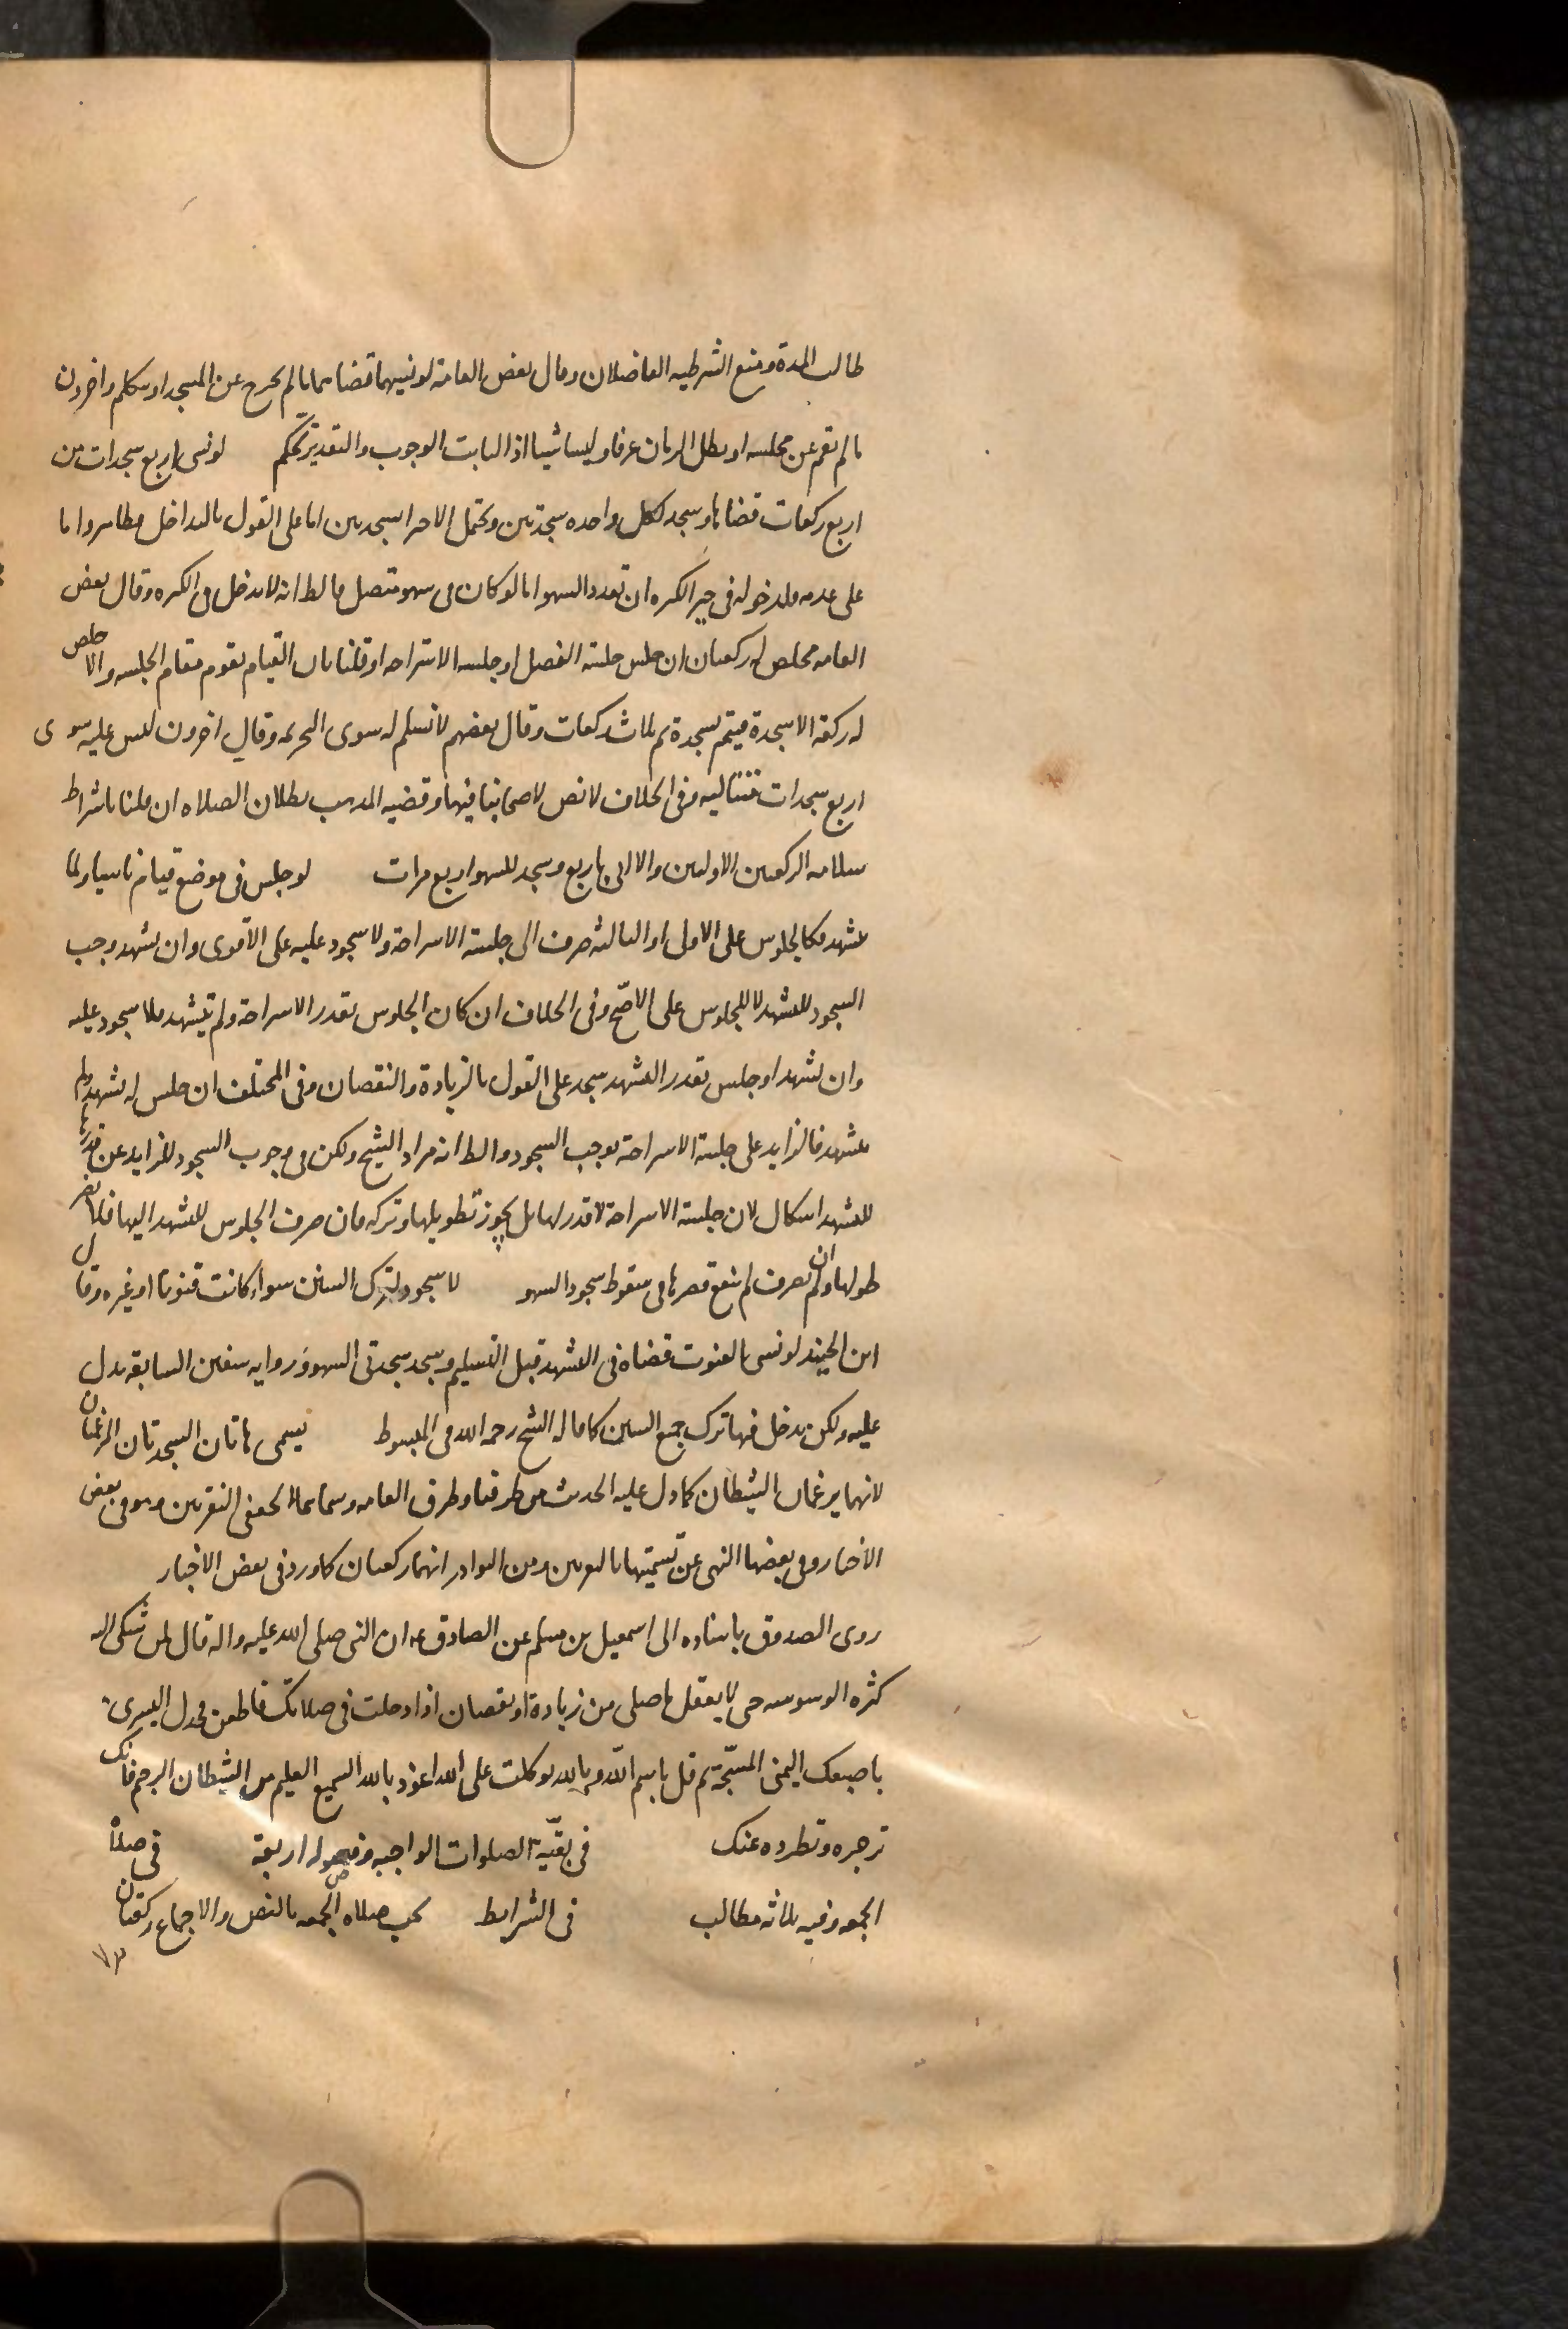 طالت المدة ومنع الشرطيه الفاضلان وقال بعض العامة لو نسيهما قضاهما ما لم يخرج عن المسجد او يتكلم واخرون
ما لم يقم عن مجلسه او يطل الزمان عرفا وليسا شيئا اذ الثابت الوجوب والتقدير تحكم لو نسى اربع سجدات من
اربع ركعات قضاها وسجد لكل واحده سجدتين ويحتمل الاجتزا بسجدتين اما على القول بالتداخل فظاهر واما
على عدمه فلدخوله فى حيز الكثره ان تعدد السهو اما لو كان فى سهو متصل فالظ انه لا يدخل فى الكثره وقال بعض
العامه يخلص له ركعتان ان جلس جلسة الفصل او جلسه الاستراحه او قلنا بان القيام يقوم مقام الجلسه والا خلص
له ركعة الا سجدة فيتم بسجدة ثم بثلاث ركعات وقال بعضهم لا تسلم له سوى التحريمه وقال اخرون ليس عليه سوى
اربع سجدات متتاليه وفى الخلاف لا نص لاصحابنا فيها وقضيه المذهب بطلان الصلاه ان قلنا باشتراط
سلامه الركعتين الاوليين والا اتى باربع وسجد للسهو اربع مرات لو جلس فى موضع قيام ناسيا ولما
يتشهد فكالجلوس على الاولى او الثالثه صرف الى جلسة الاستراحة ولا سجود عليه على الأقوى وان تشهد وجب
السجود للتشهد لا للجلوس على الاصّح وفى الخلاف ان كان الجلوس بقدر الاستراحة ولم يتشهد فلا سجود عليه
وان تشهد او جلس بقدر التشهد سجد على القول بالزيادة والنقصان وفى المختلف ان جلس له تشهد ولم
يتشهد فالزايد على جلسة الاستراحة يوجب السجود والظ انه مراد الشيخ ولكن فى وجوب السجود للزايد عن قدرها
للتشهد اشكال لان جلسة الاستراحة لا قدر لها بل يجوز تطويلها وتركه فان صرف الجلوس للتشهد اليها فلا يضر
طولها وان لم يصرف لم ينفع قصرها فى سقوط سجود السهو لا سجود لترك السنن سواء كانت قنوتا او غيره وقال
ابن الجنيد لو نسى القنوت قضاه فى التشهد قبل التسليم وسجد سجدتى السهو وروايه سفين السابقه تدل
عليه ولكن يدخل فيها ترك جميع السنن كما قاله الشيخ رحمه الله فى المبسوط يسمى هاتان السجدتان المرغمتان
لانهما يرغمان الشيطان كما دل عليه الحديث من طرقنا وطرق العامه وسماهما الجعفى النقرتين وهو فى بعض
الاخبار وفى بعضها النهى عن تسميتها بالنقرتين ومن النوادر انهما ركعتان كما ورد فى بعض الاخبار
روى الصدوق باسناده الى اسمعيل بن مسلم عن الصادق عه ان النبى صلى الله عليه واله قال لمن شكى اليه
كثره الوسوسه حتى لا يعقل ما صلى من زيادة او نقصان اذا دخلت فى صلاتك فاطعن فخذك اليسرى
باصبعك اليمنى المسبّحة ثم قل باسم الله وبالله توكلت على الله اعوذ بالله السميع العليم من الشيطان الرجيم فانك
تزجره وتطرده عنك فى بقيّة الصلوات الواجبه وفصوله اربعة فى صلاة
الجمعه وفيه ثلاثه مطالب فى الشرايط تجب صلاه الجمعه بالنص والاجماع ركعتان